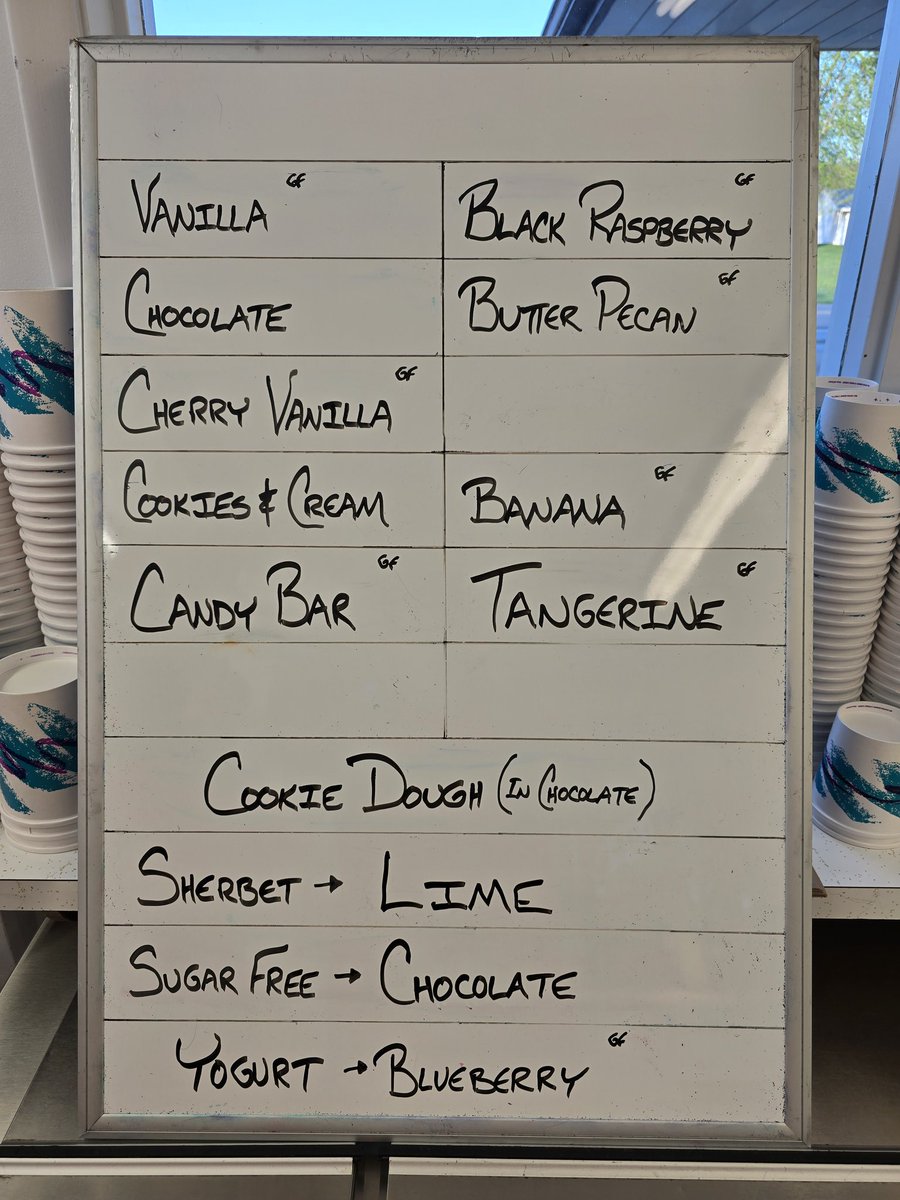 VANILLA GF
BLACK RASPBERRY GF
CHOCOLATE
BUTTER PECAN GF
CHERRY VANILLA GF
COOKIES & CREAM
BANANA GF
CANDY BAR GF
TANGERINE GF
COOKIE DOUGH (IN CHOCOLATE)
SHERBET → LIME
SUGAR FREE → CHOCOLATE
YOGURT → BLUEBERRY GF